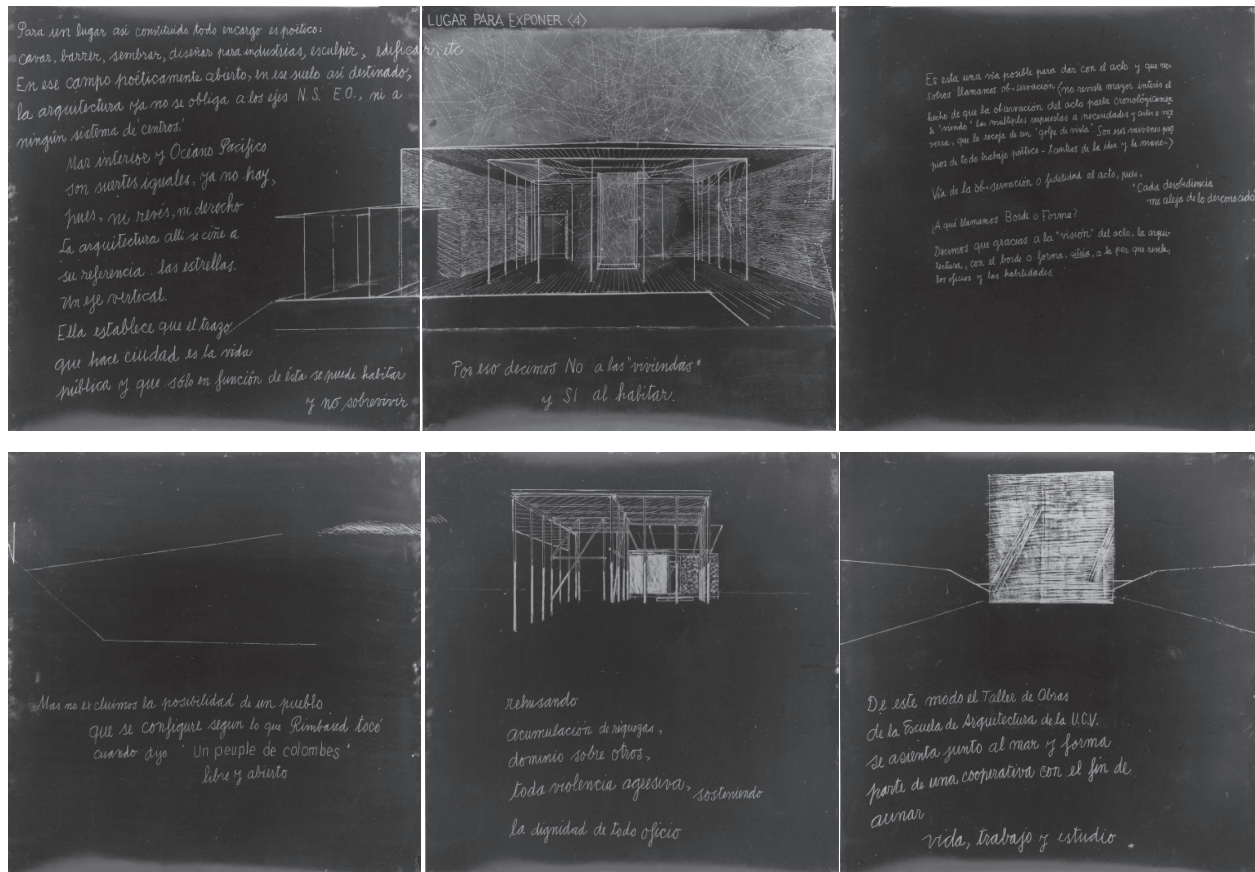 Para un lugar así constituido todo encargo es poético:
cavar, barrer, sembrar, diseñar para industrias, esculpir, edificar, etc
En ese campo poéticamente abierto, en ese suelo así destinado,
la arquitectura ya no se obliga a los ejes N.S. E.O., ni a
ningún sistema de "centros."
Mar interior y Océano Pacífico
son suertes iguales, ya no hay,
pues, ni revés, ni derecho
La arquitectura allí se ciñe a
su referencia: las estrellas.
Un eje vertical.
Ella establece que el trazo
que hace ciudad es la vida
pública y que sólo en función de ésta se puede habitar
y no sobrevivir
LUGAR PARA EXPONER <4>
Por eso decimos No a las "viviendas"
y SI al habitar.
Es esta una vía posible para dar con el acto y que no-
sotros llamamos ob-servación (no reviste mayor interés el
hecho de que la observación del acto parta cronológicamen
te "viendo" las múltiples respuestas a necesidades y
versa, que lo recoja de un "golpe de vista" Son sus versiones pro
pios de todo trabajo poético - tanteos de la idea y la mano-)
Vía de la ob-servación o fidelidad al acto, pues,
"Cada desobediencia
me aleja de lo desconocido
¿A qué llamamos Borde o Forma?
Decimos que gracias a la "visión" del acto, la arqui-
tectura, con el borde o forma, sitúa, a la par que revela,
los oficios y las habilidades.
Mas no excluimos la posibilidad de un pueblo
que se configure segun lo que Rimbaud tocó
cuando dijo "Un peuple de colombes"
libre y abierto
rehusando
acumulación de riquezas,
dominio sobre otros,
toda violencia agresiva, sosteniendo
la dignidad de todo oficio
De este modo el Taller de Obras
de la Escuela de Arquitectura de la U.C.V.
se asienta junto al mar y forma
parte de una cooperativa con el fin de
aunar
vida, trabajo y estudio.